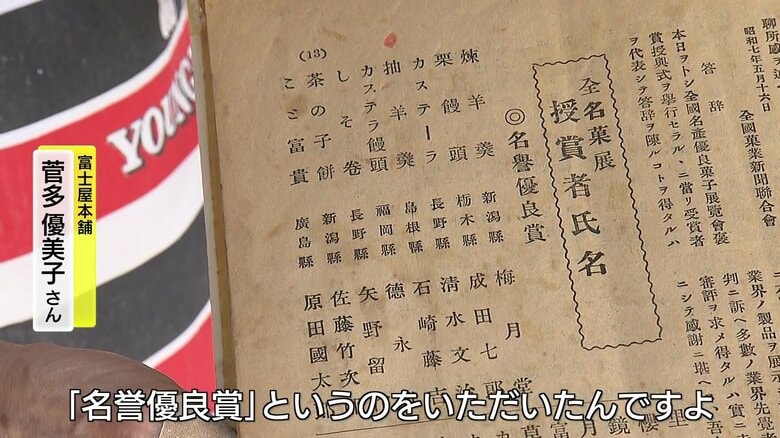 昭和七年五月十六日
全國菓業新聞聯合會
答辞
本日ヲトシ全國名産優良菓子展覽會褒
賞授與式ヲ擧行セラルヽニ當リ受賞者
ヲ代表シテ答辞ヲ陳ルコトヲ得タルハ
業界ノ製品ヲ展
判ニ訴ヘ多數ノ業界先覺
審評ヲ求メ得タルハ實ニ
ニシテ感謝ニ堪ヘ
全名菓展
授賞者氏名
◎名譽優良賞
煉羊羹 新潟縣 梅月堂
栗饅頭 栃木縣 成田七郎
カステーラ 長野縣 清水文治
柚羊羹 島根縣 石崎藤
カステラ饅頭 福岡縣 德永
しそ卷 長野縣 矢野留
茶の子餅 新潟縣 佐藤竹次
こゝ富貴 廣島縣 原田國太
(13)
YOUNG
富士屋本舗
菅多 優美子さん
「名誉優良賞」というのをいただいたんですよ